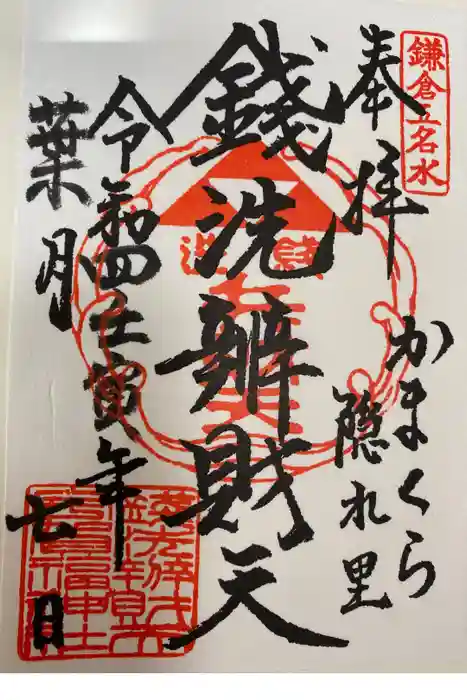 鎌倉五名水
奉拝
かまくら
隠れ里
銭洗
錢洗辨財天
令和四壬寅年
葉月
七日